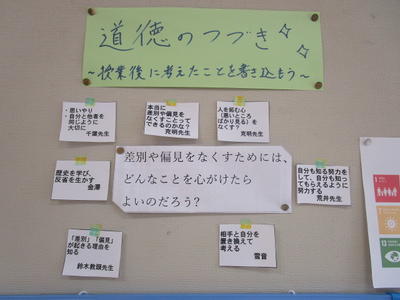 道徳のつづき
～授業後に考えたことを書き込もう～
・思いやり
・自分と他者を
同じように
大切に
千葉先生
本当に
差別や偏見を
なくすことって
できるのかな？
克明先生
人を拓む心
(悪いところ
ばかり見る)を
なくす？
克明先生
歴史を学び、
反省を生かす
金澤
差別や偏見をなくすためには、
どんなことを心がけたら
よいのだろう？
自分も知る努力を
して、自分も知っ
てもらえるように
努力する
荒井先生
「差別」「偏見」
が起きる理由を
知る
鈴木教頭先生
相手と自分を
置き換えて
考える
雪音